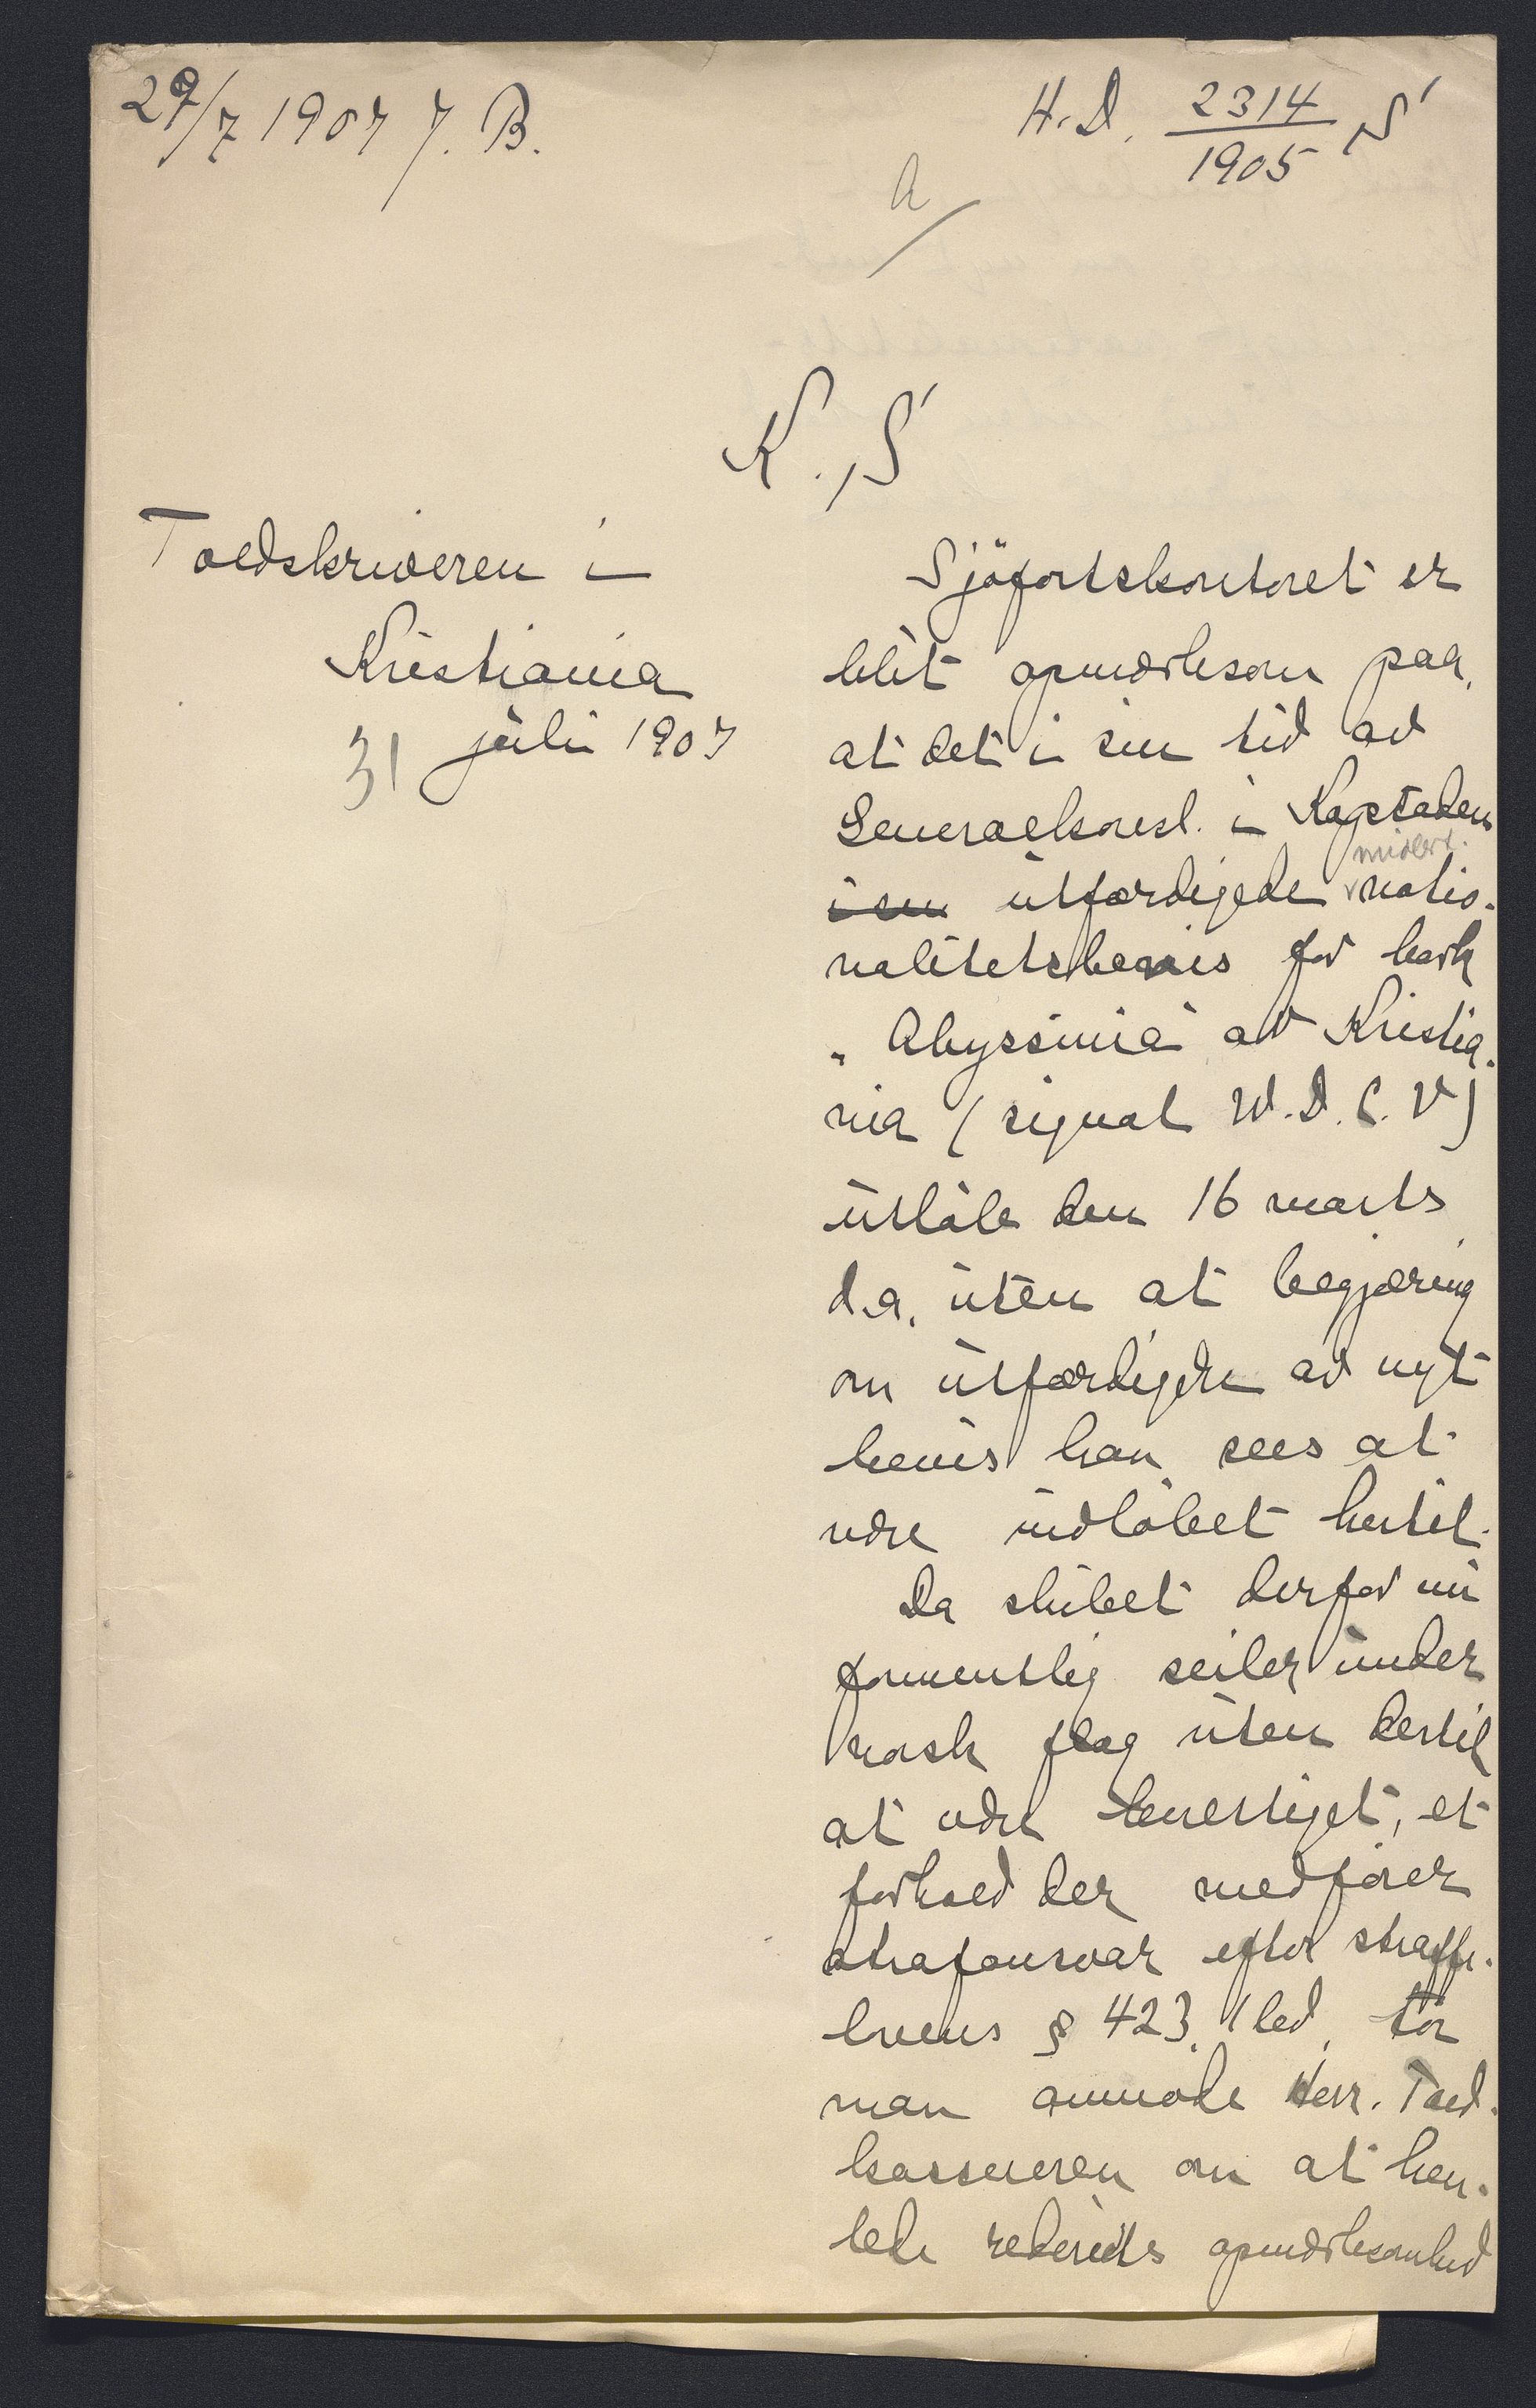 29/7 1907 J. B.
H. D. 2314/1905 S
a/
K. S
Toldskriveren i
Kristiania
31 juli 1907
Sjöfartskontoret er
blit opmerksom paa,
at det i sin tid av
Generalkonsl. i Kapstaden
i sin utfærdigede midlert. natio-
nalitetsbevis for bark
"Abyssinia" av Kristia-
nia (signal W. D. C. V)
utløb den 16 marts
d.a. uten at begjæring
om utfærdigelse av nyt
bevis kan sees at
være indløbet hertil.
Da skibet derfor nu
formentlig seiler under
norsk flag uten dertil
at være berettiget, et
forhold der medfører
strafansvar efter straffe-
lovens § 423, 1 led, tör
man anmode Herr. Told-
kassereren om at hen-
lede rederiets opmerksomhed